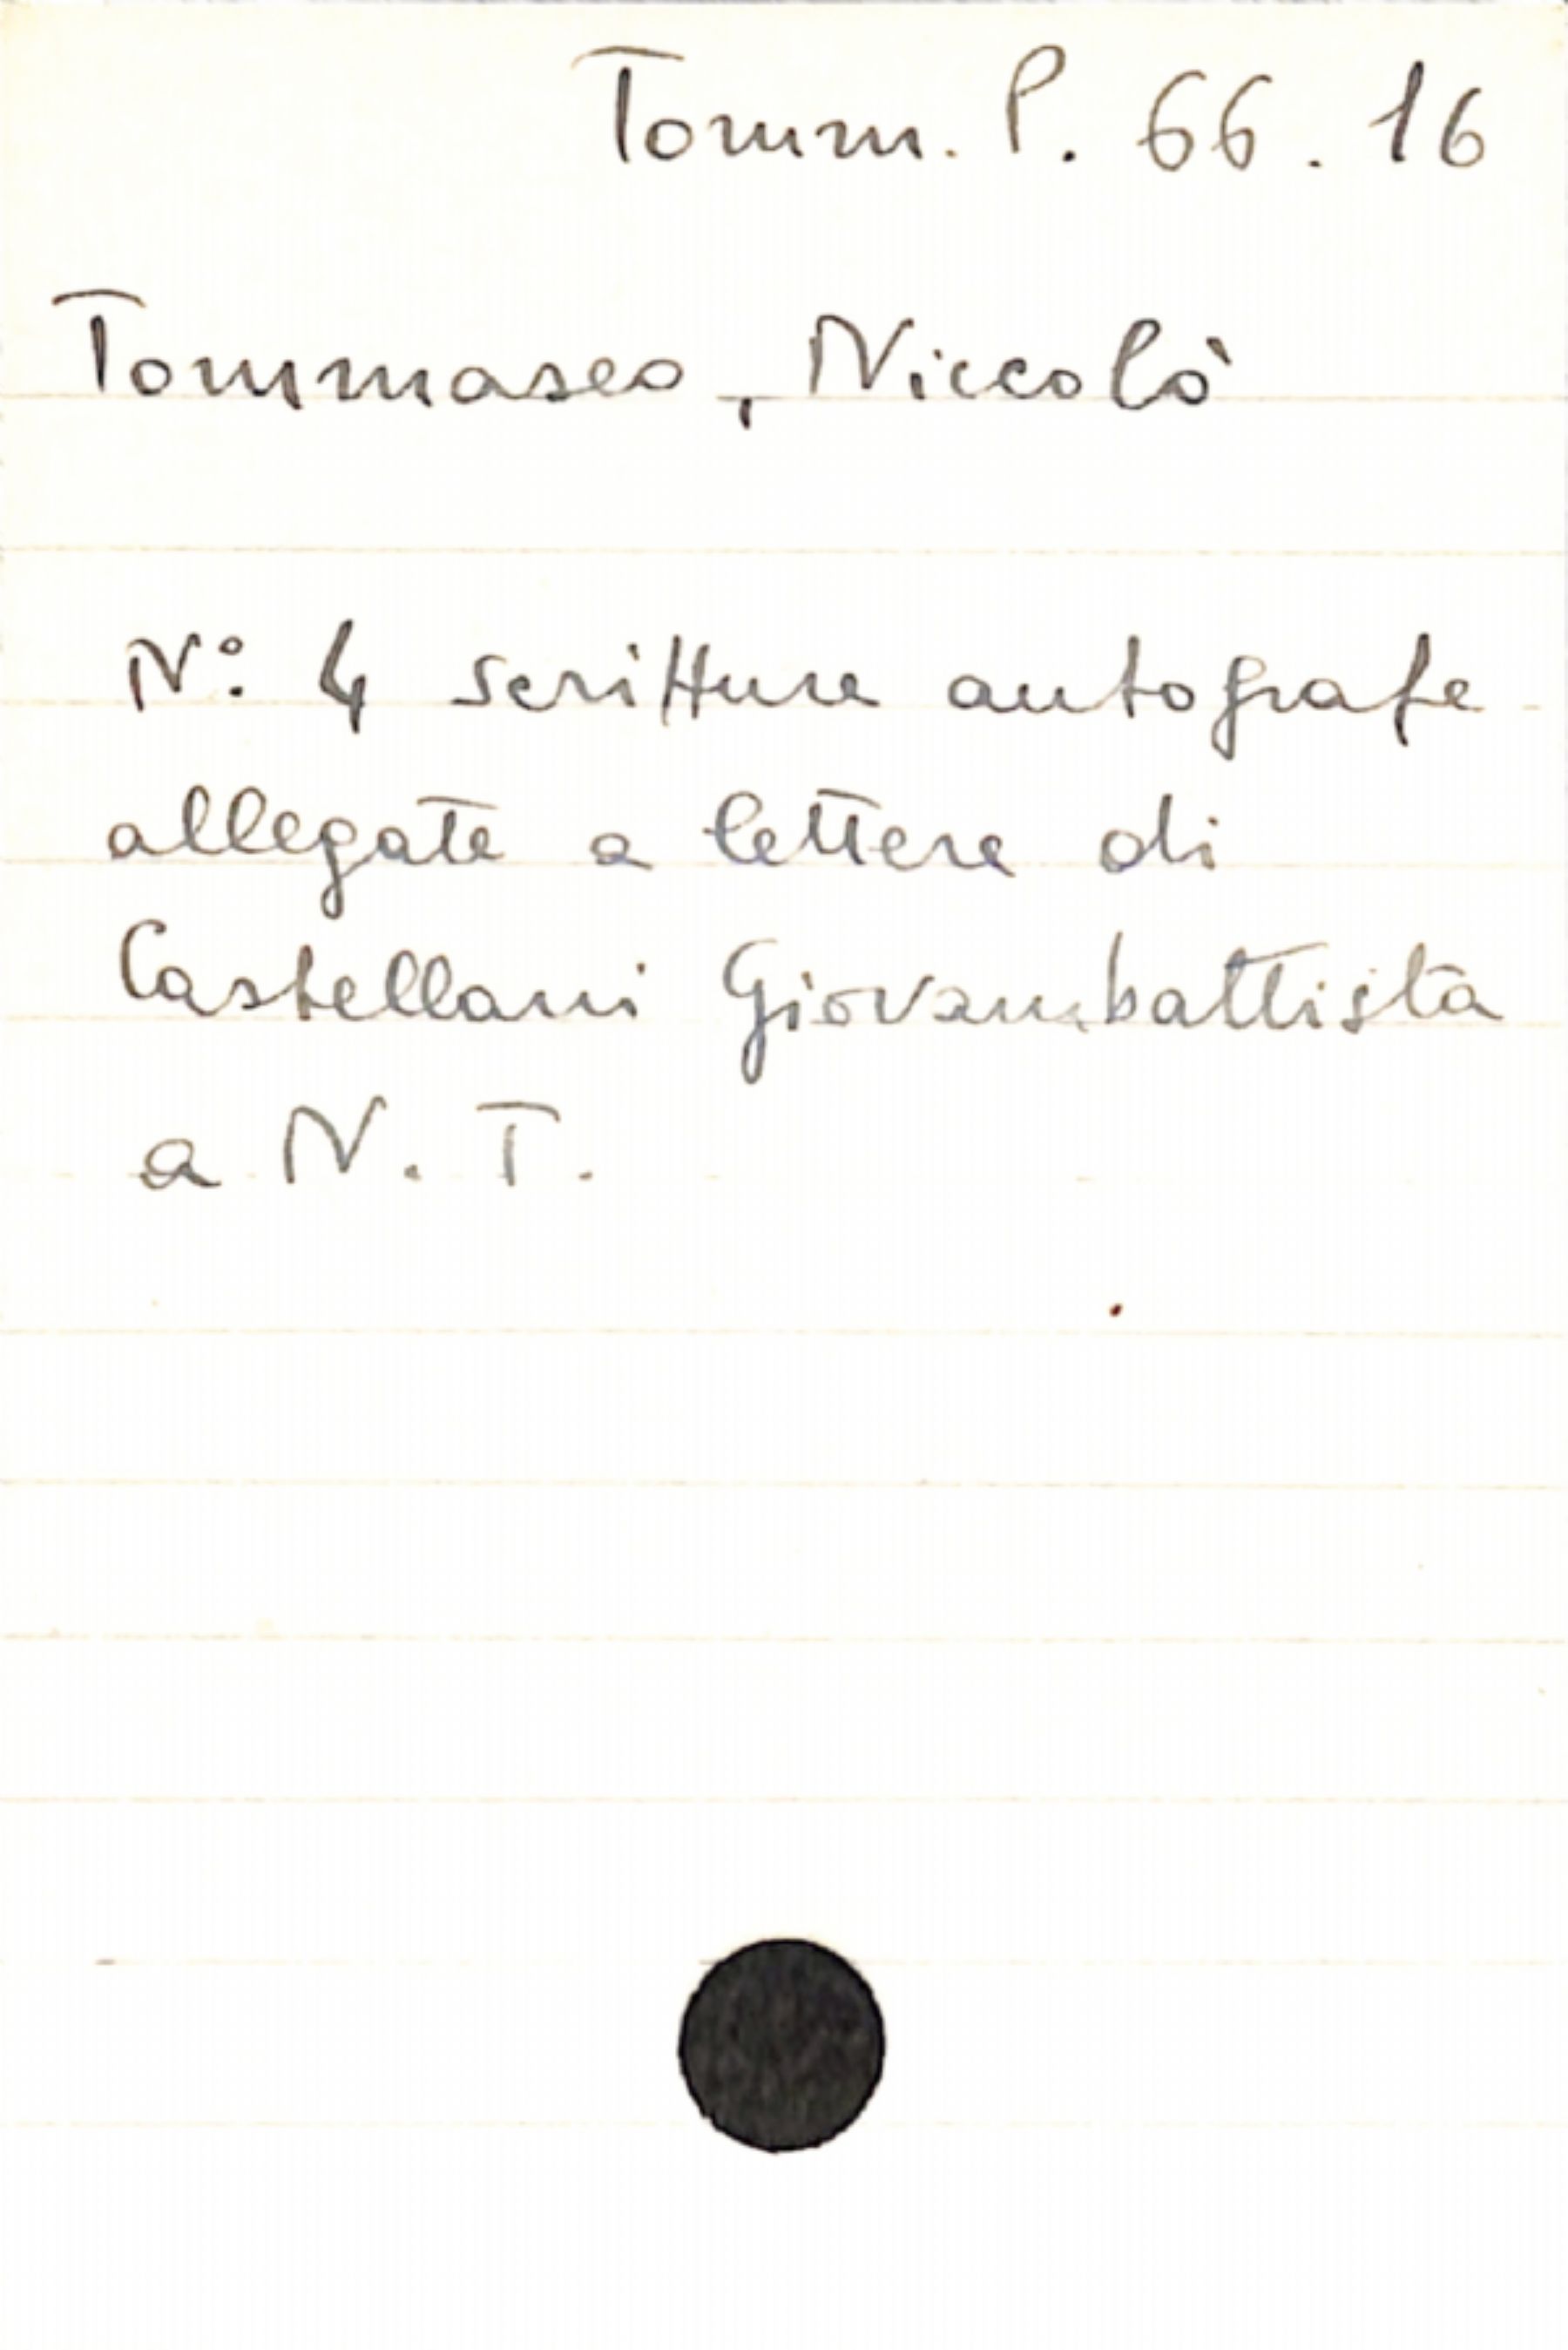 Tomm. P. 66. 16
Tommaseo, Niccolò
N°: 4 scritture autografe
allegate a lettere di
Castellani Giovambattista
a N. T.